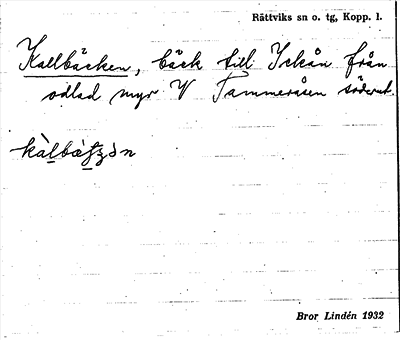 Rättviks sn o. tg, Kopp. l.
Kallbäcken, bäck till Ickån från
odlad myr V Tammeråsen söderut.
Bror Lindén 1932